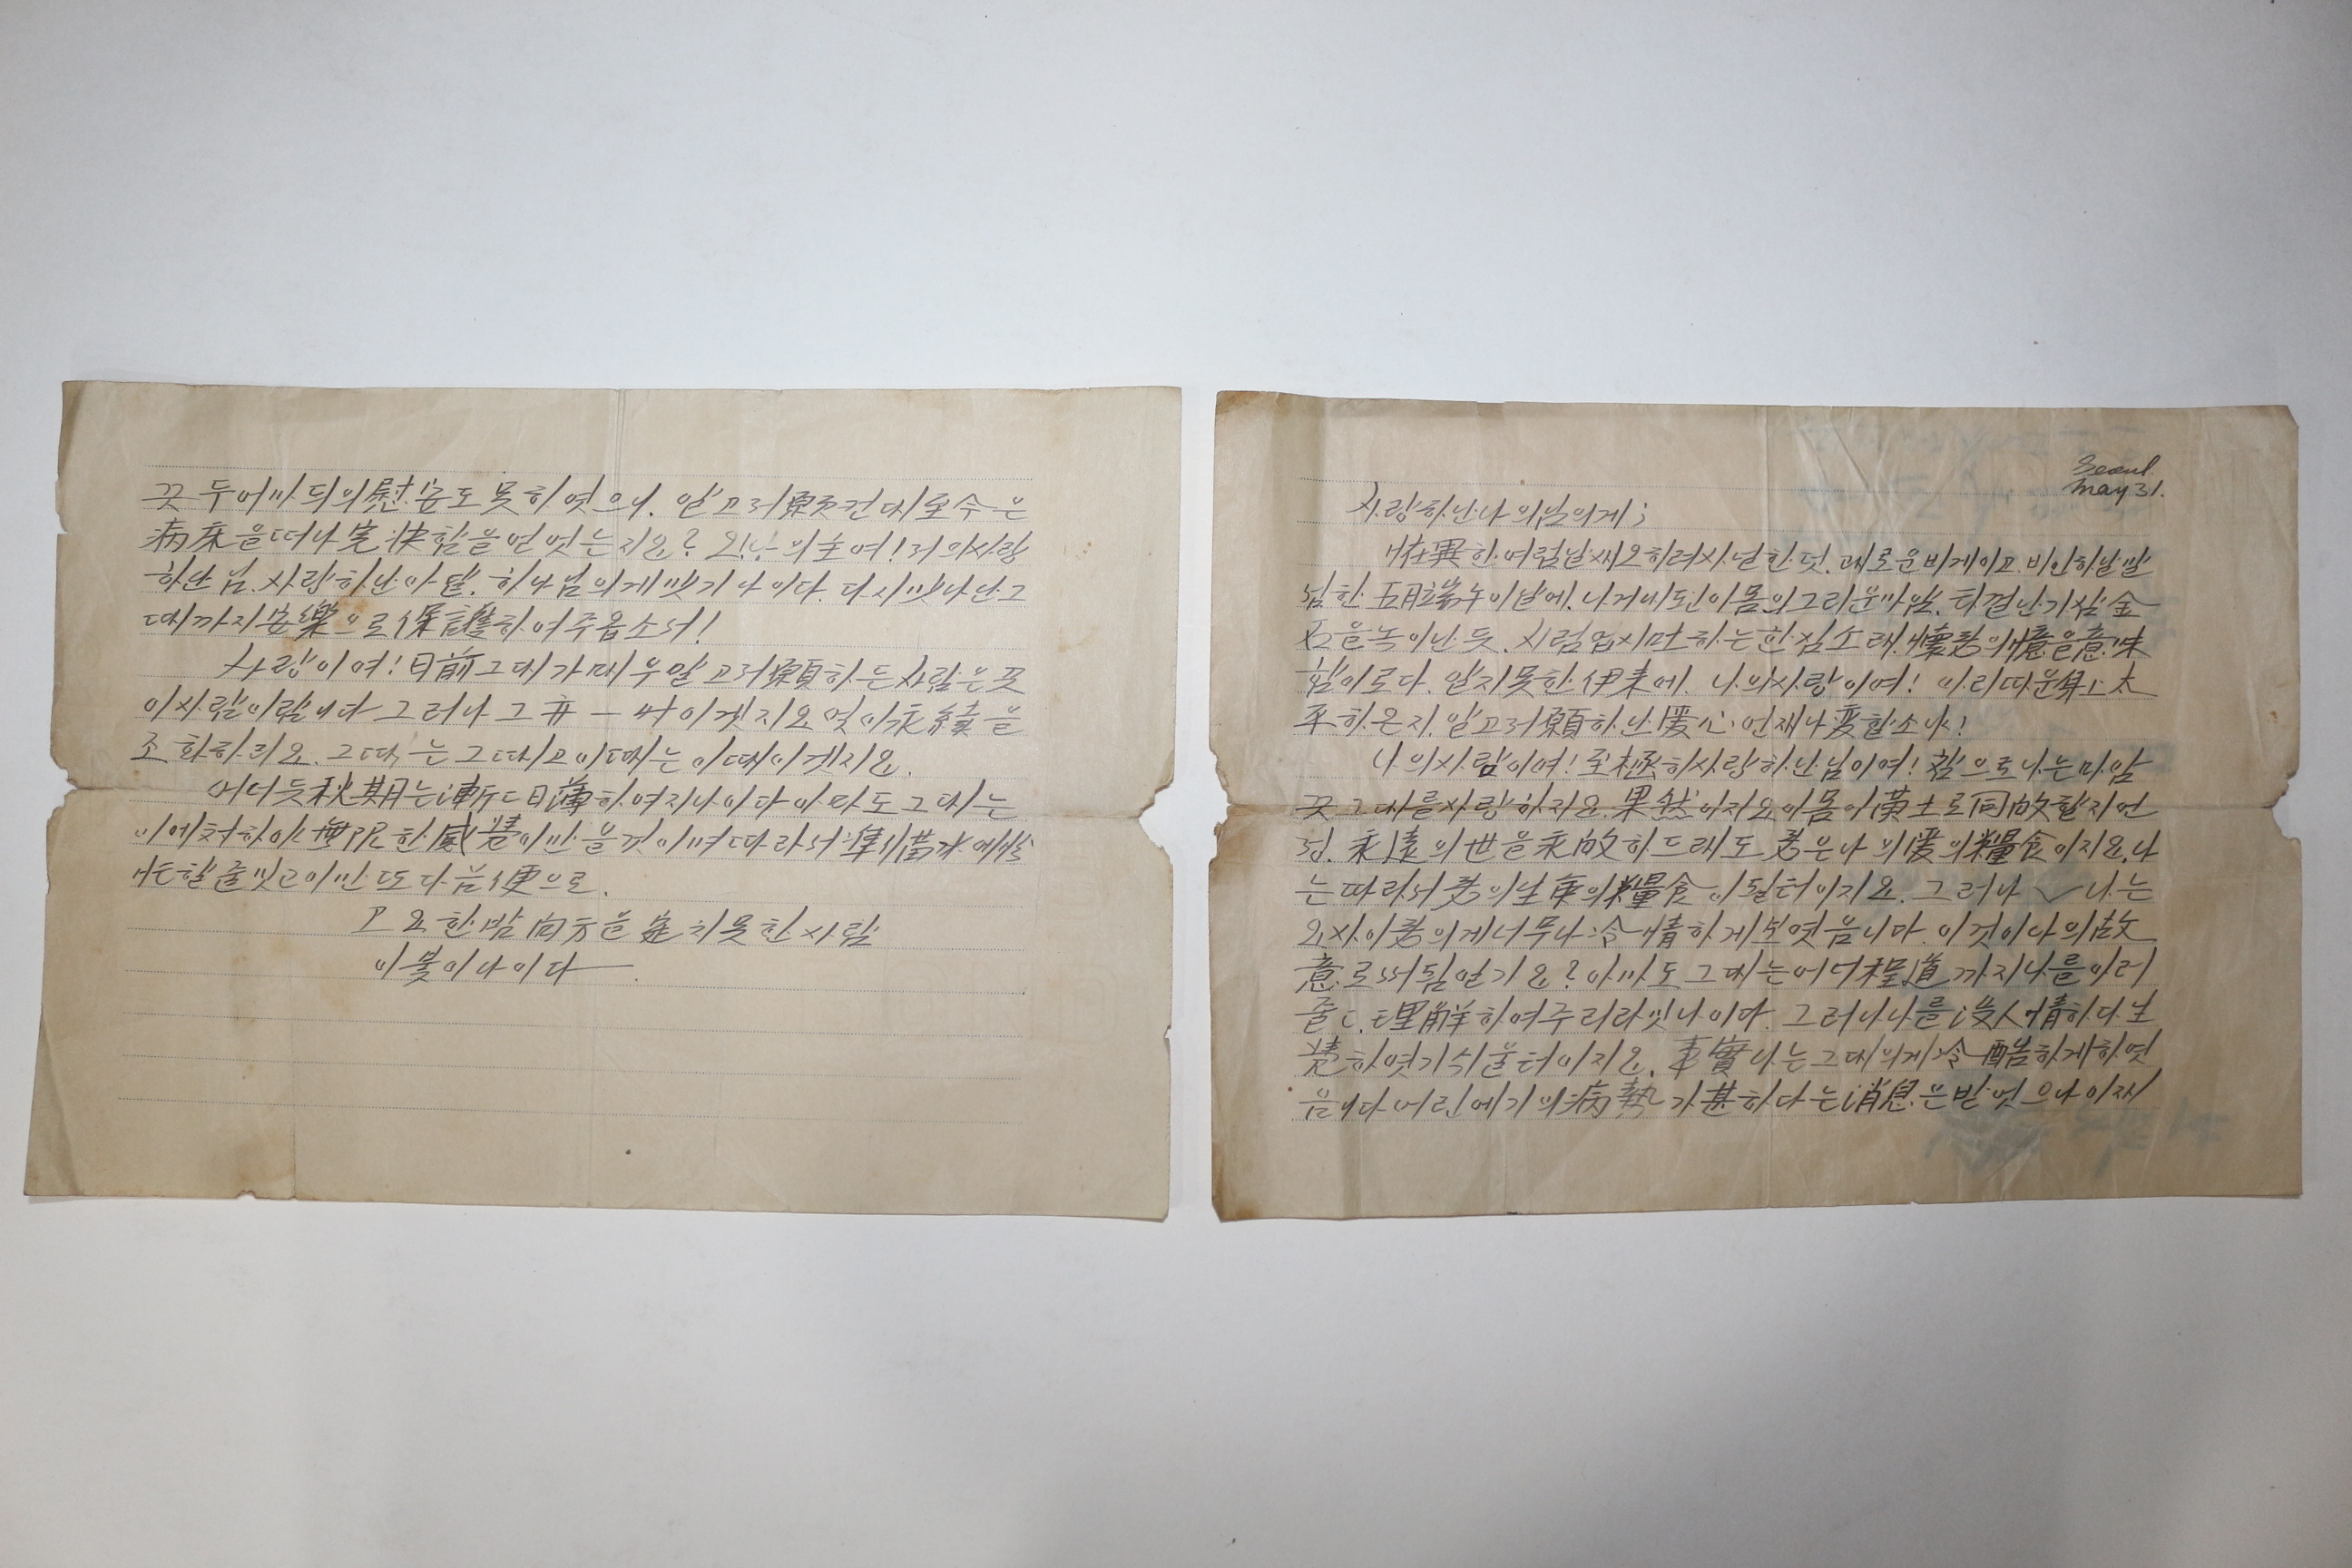 Seoul.
May 31.
사랑하난나의님의게;
한여름날씨오히려사널한덧.괴로운비게이고.비인하날말
님한五月端午이날에.나게비되인이몸의그리운마암.타낄난가삼金
石을녹이난듯.시럼업시吐하는한심소래.懷君의憶을意味
함이로다.알지못한伊来에.나의사랑이여! 아리따운身上太
平하온지.알고저願하난愛心언제나変할소냐!
나의사랑이여!至極히사랑하난님이여!참으로나는마암
끗그대를사랑하지요.果然이지요이몸이黃土로同故할지언
정.永遠의世을永故하드래도君은나의愛의糧食이지요.나
는따라서君의生命의糧食이될터이지요.그러나 나는
요사이君의게너무나冷情하게보엿음니다.이것이나의故
意로써됨인가요?아마도그대는어너程度까지나를이러
줄노理解하여주리라밋나이다.그러나나를沒人情하다生
覺하엿기쉬울터이지요.事實나는그대의게冷酷하게하엿
음니다어린애기의病勢가甚하다는消息은받엇으나이째
끗두어마듸의慰安도못하엿으니.알고저願컨대至今은
病床을떠나完快함을얻엇는지요?오!나의主여!저의사랑
하난님.사랑하난아달.하나님의게맛기나이다.다시맛나난그
때까지安樂으로保護하여주옵소서!
사랑이여!日前그대가매우알고저願하든사람은끗
이사람이람니다그러나그 이겟지요엇이永續을
조화하리요.그때는그때고이때는이때이겟지요.
어너듯秋期는漸々日薄하여지나이다아마도그대는
이에対하야無限한感覺이만을것이며따라서準備 에
忙할줄밋고이만또다음便으로.
고요한밤向方을定치못한사람
이붓이나이다